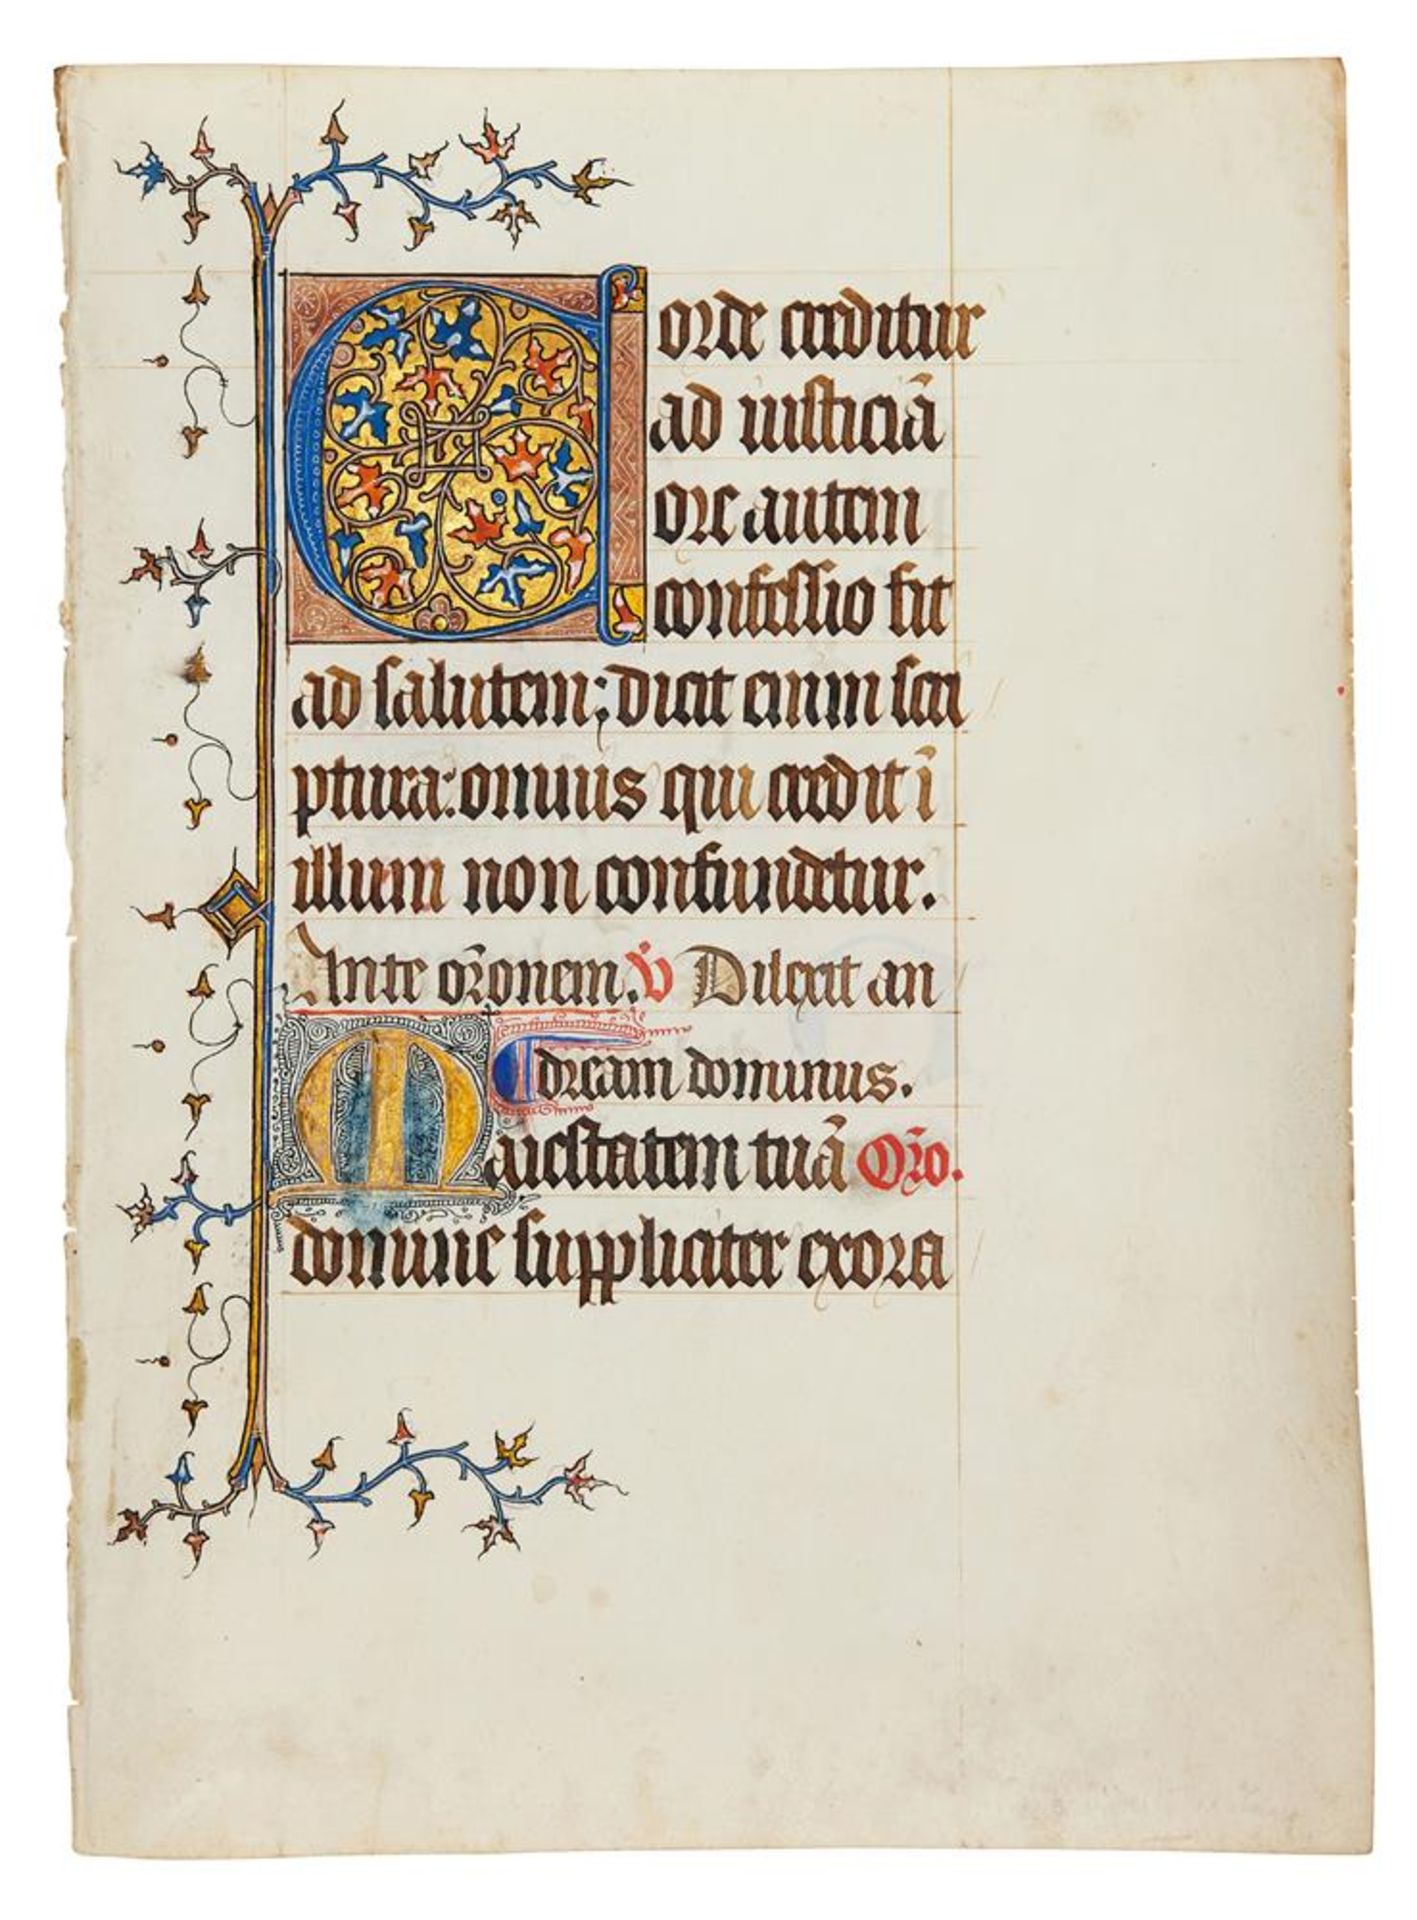 Corde creditur
ad iusticiā
ore autem
confessio fit
ad salutem; dicit enim scri
ptura: omnis qui credit ī
illum non confundetur.
Ante or̄onem. V̄ Dilexit an
dream dominus.
Maiestatem tuā Or̄o.
domine suppliciter exora